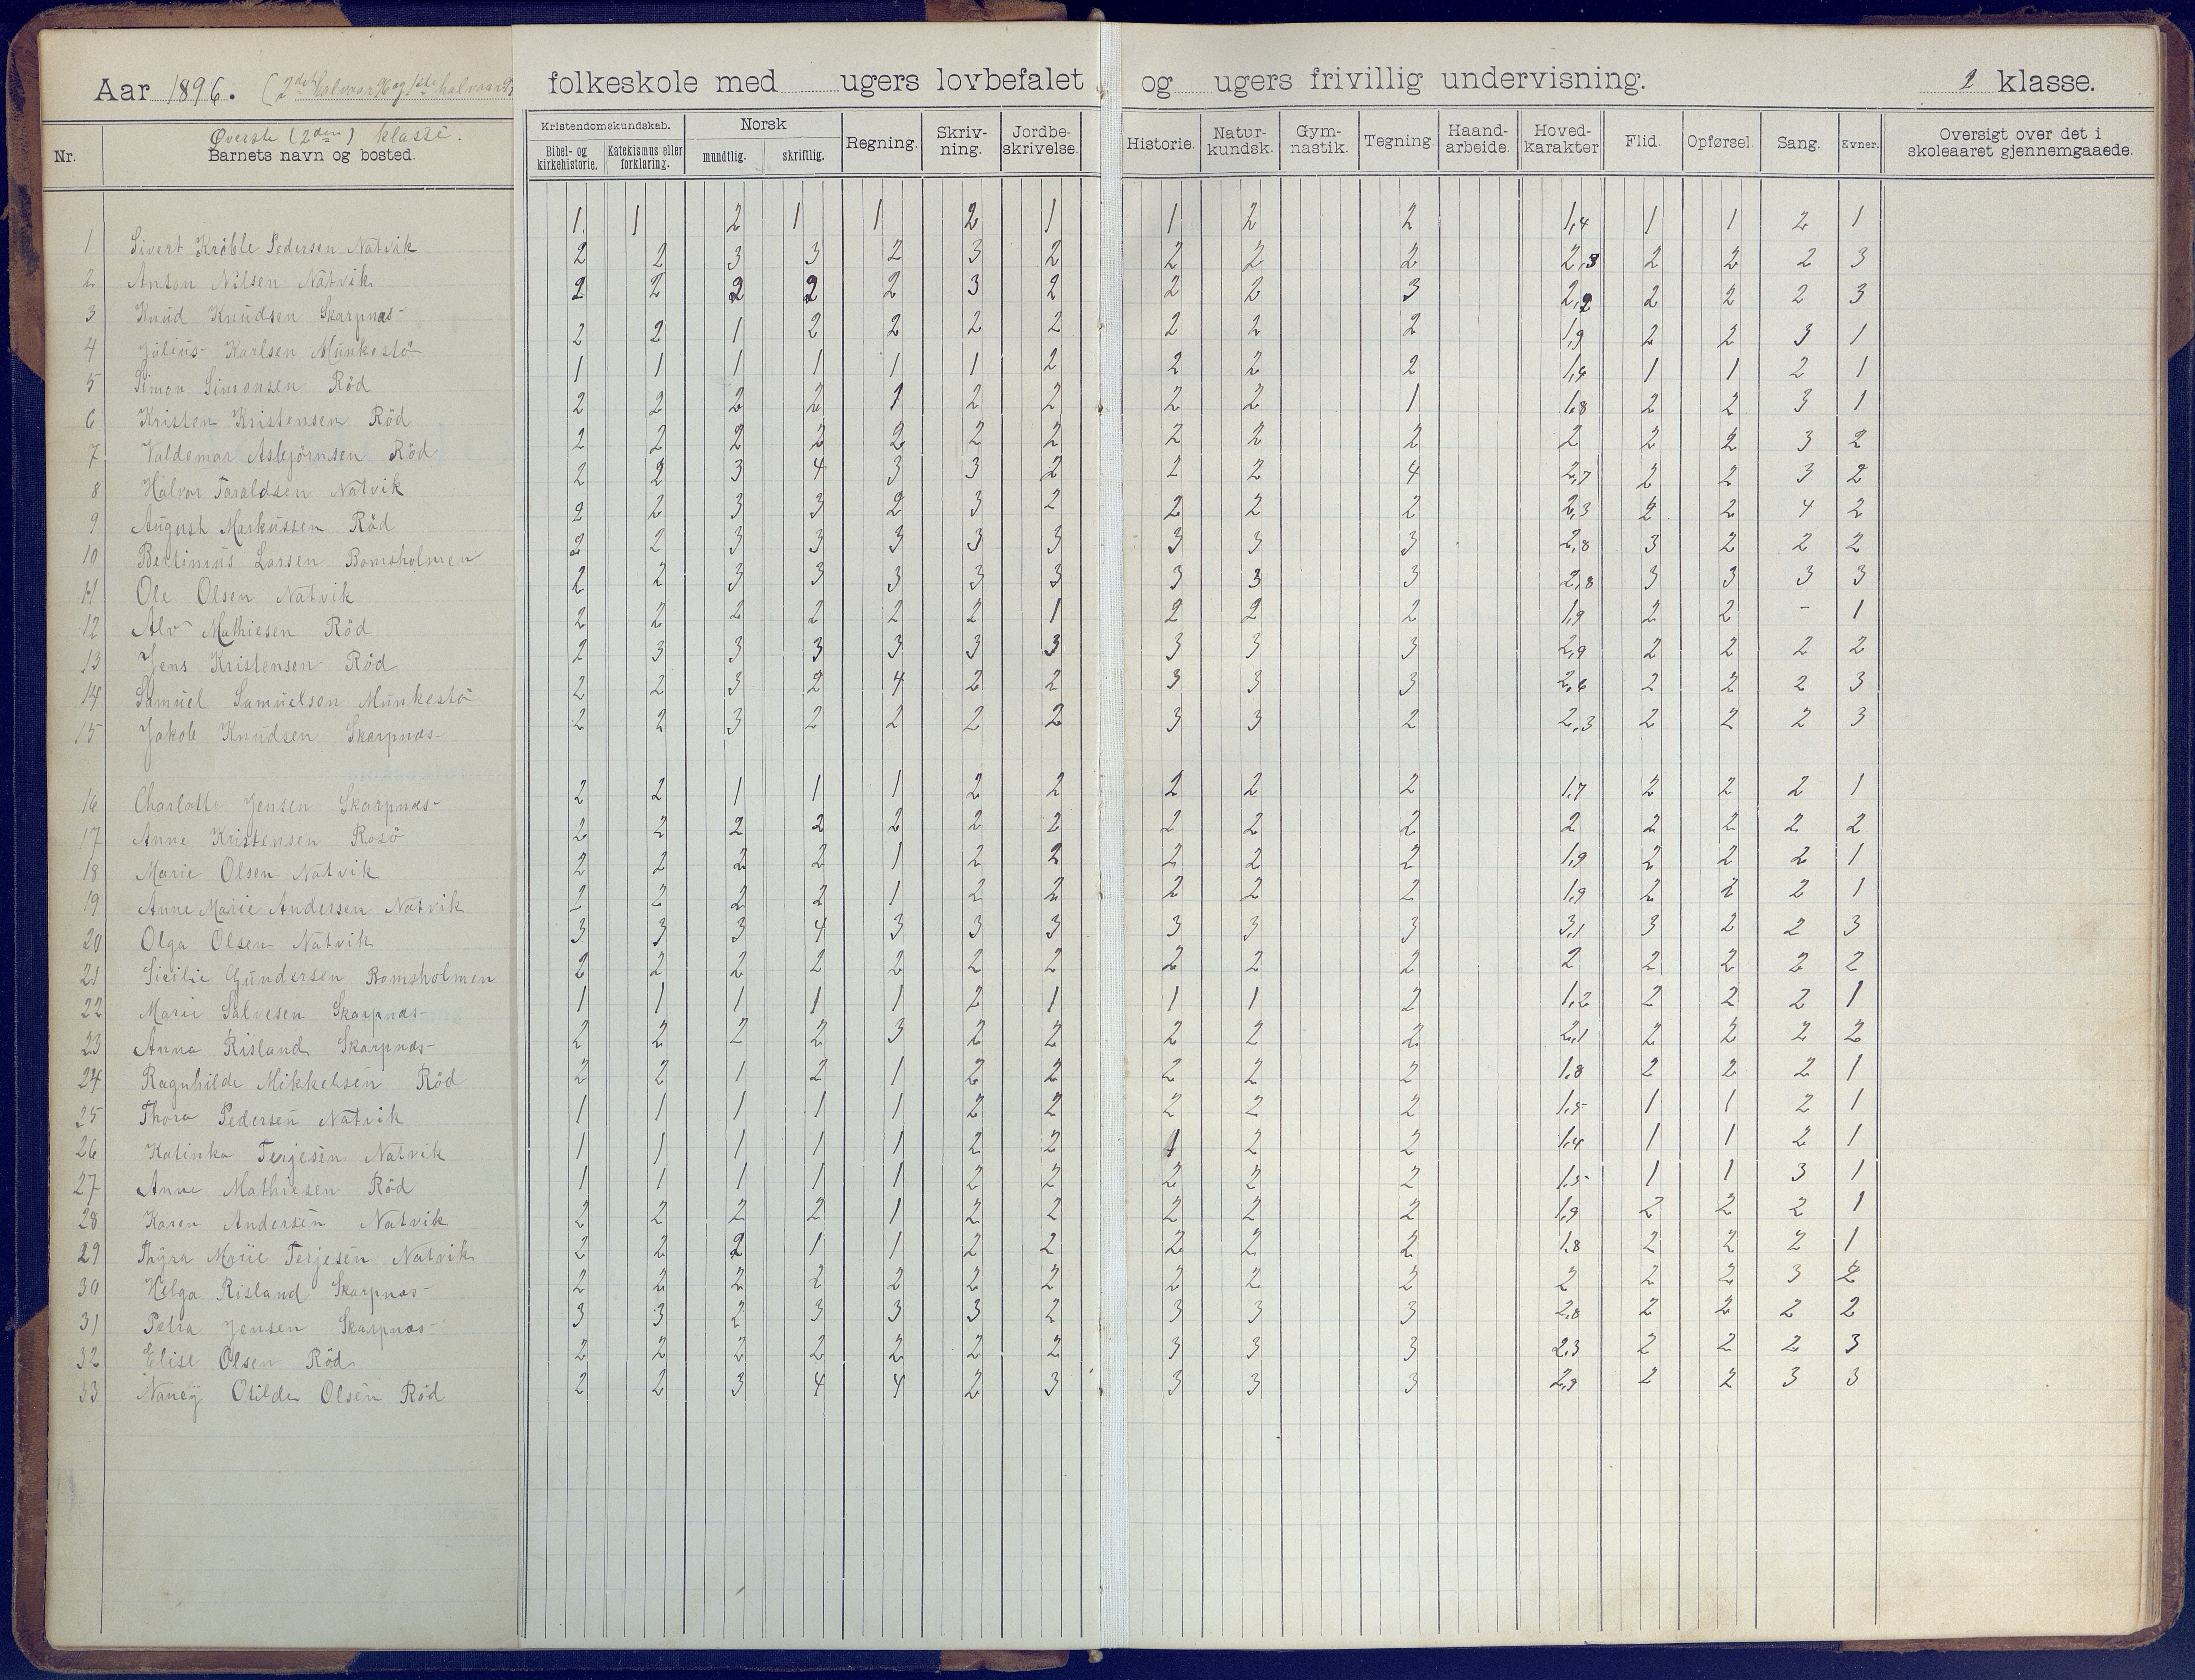 Aar 1896. (2det halvaar 96 og 1ste halvaar 97 folkeskole med ugers lovbefalet og ugers frivillig undervisning. 2 klasse.
Øverste (2den) klasse.
Nr. Barnets navn og bosted. Kristendomskundskab. Bibel- og kirkehistorie. Katekismus eller forklaring. Norsk mundtlig. skriftlig. Regning. Skriv-ning. Jordbe-skrivelse. Historie. Natur-kundsk. Gym-nastik. Tegning. Haand-arbeide. Hoved-karakter Flid. Opførsel. Sang. Evner. Oversigt over det i skoleaaret gjennemgaaede.
1 Sivert Kröble Pedersen Natvik 1 1 2 1 1 2 1 1 2 2 1,4 1 1 2 1
2 Anton Nilsen Natvik 2 2 3 3 2 3 2 2 2 2 2,3 2 2 2 3
3 Knud Knudsen Skarpnæs 2 2 2 2 2 3 2 2 2 3 2,2 2 2 2 3
4 Julius Karlsen Munkestö 2 2 1 2 2 2 2 2 2 2 1,9 2 2 3 1
5 Simon Simonsen Röd 1 1 1 1 1 1 2 2 2 2 1,4 1 1 2 1
6 Kristen Kristensen Röd 2 2 2 2 1 2 2 2 2 1 1,8 2 2 3 1
7 Valdemar Asbjörnsen Röd 2 2 2 2 2 2 2 2 2 2 2 2 2 3 2
8 Halvor Taraldsen Natvik 2 2 3 4 3 3 2 2 2 4 2,7 2 2 3 2
9 August Markussen Röd 2 2 3 3 2 3 2 2 2 2 2,3 2 2 4 2
10 Bertinius Larsen Bomsholmen 2 2 3 3 3 3 3 3 3 3 2,8 3 2 2 2
11 Ole Olsen Natvik 2 2 3 3 3 3 3 3 3 3 2,8 3 3 3 3
12 Alv Mathiesen Röd 2 2 2 2 2 2 1 2 2 2 1,9 2 2 - 1
13 Jens Kristensen Röd 2 3 3 3 3 3 3 3 3 3 2,9 2 2 2 2
14 Samuel Samuelson Munkestö 2 2 3 2 4 2 2 3 3 3 2,6 2 2 2 3
15 Jakob Knudsen Skarpnæs 2 2 3 2 2 2 2 3 3 2 2,3 2 2 2 3
16 Charlotte Jensen Skarpnæs 2 2 1 1 1 2 2 2 2 2 1,7 2 2 2 1
17 Anne Kristensen Rosö 2 2 2 2 2 2 2 2 2 2 2 2 2 2 2
18 Marie Olsen Natvik 2 2 2 2 1 2 2 2 2 2 1,9 2 2 2 1
19 Anne Marie Andersen Natvik 2 2 2 2 1 2 2 2 2 2 1,9 2 2 2 1
20 Olga Olsen Natvik 3 3 3 4 3 3 3 3 3 3 3,1 3 2 2 3
21 Sicilie Gundersen Bomsholmen 2 2 2 2 2 2 2 2 2 2 2 2 2 2 2
22 Marie Salvesen Skarpnæs 1 1 1 1 1 2 1 1 1 2 1,2 2 2 2 1
23 Anna Risland Skarpnæs 2 2 2 2 3 2 2 2 2 2 2,1 2 2 2 2
24 Ragnhilde Mikkelsen Röd 2 2 1 2 1 2 2 2 2 2 1,8 2 2 2 1
25 Thora Pedersen Natvik 1 1 1 1 1 2 2 2 2 2 1,5 1 1 2 1
26 Katinka Terjesen Natvik 1 1 1 1 1 2 2 1 2 2 1,4 1 1 2 1
27 Anne Mathiesen Röd 1 1 1 1 1 2 2 2 2 2 1,5 1 1 3 1
28 Karen Andersen Natvik 2 2 2 2 1 2 2 2 2 2 1,9 2 2 2 1
29 Thyra Marie Terjesen Natvik 2 2 2 1 1 2 2 2 2 2 1,8 2 2 2 1
30 Helga Risland Skarpnæs 2 2 2 2 2 2 2 2 2 2 2 2 2 3 2
31 Petra Jensen Skarpnæs 3 3 2 3 3 3 2 3 3 3 2,8 2 2 2 2
32 Elise Olsen Röd 2 2 2 2 2 2 2 3 3 3 2,3 2 2 2 3
33 Nancy Otilde Olsen Röd 2 2 3 4 4 2 3 3 3 3 2,9 2 2 3 3